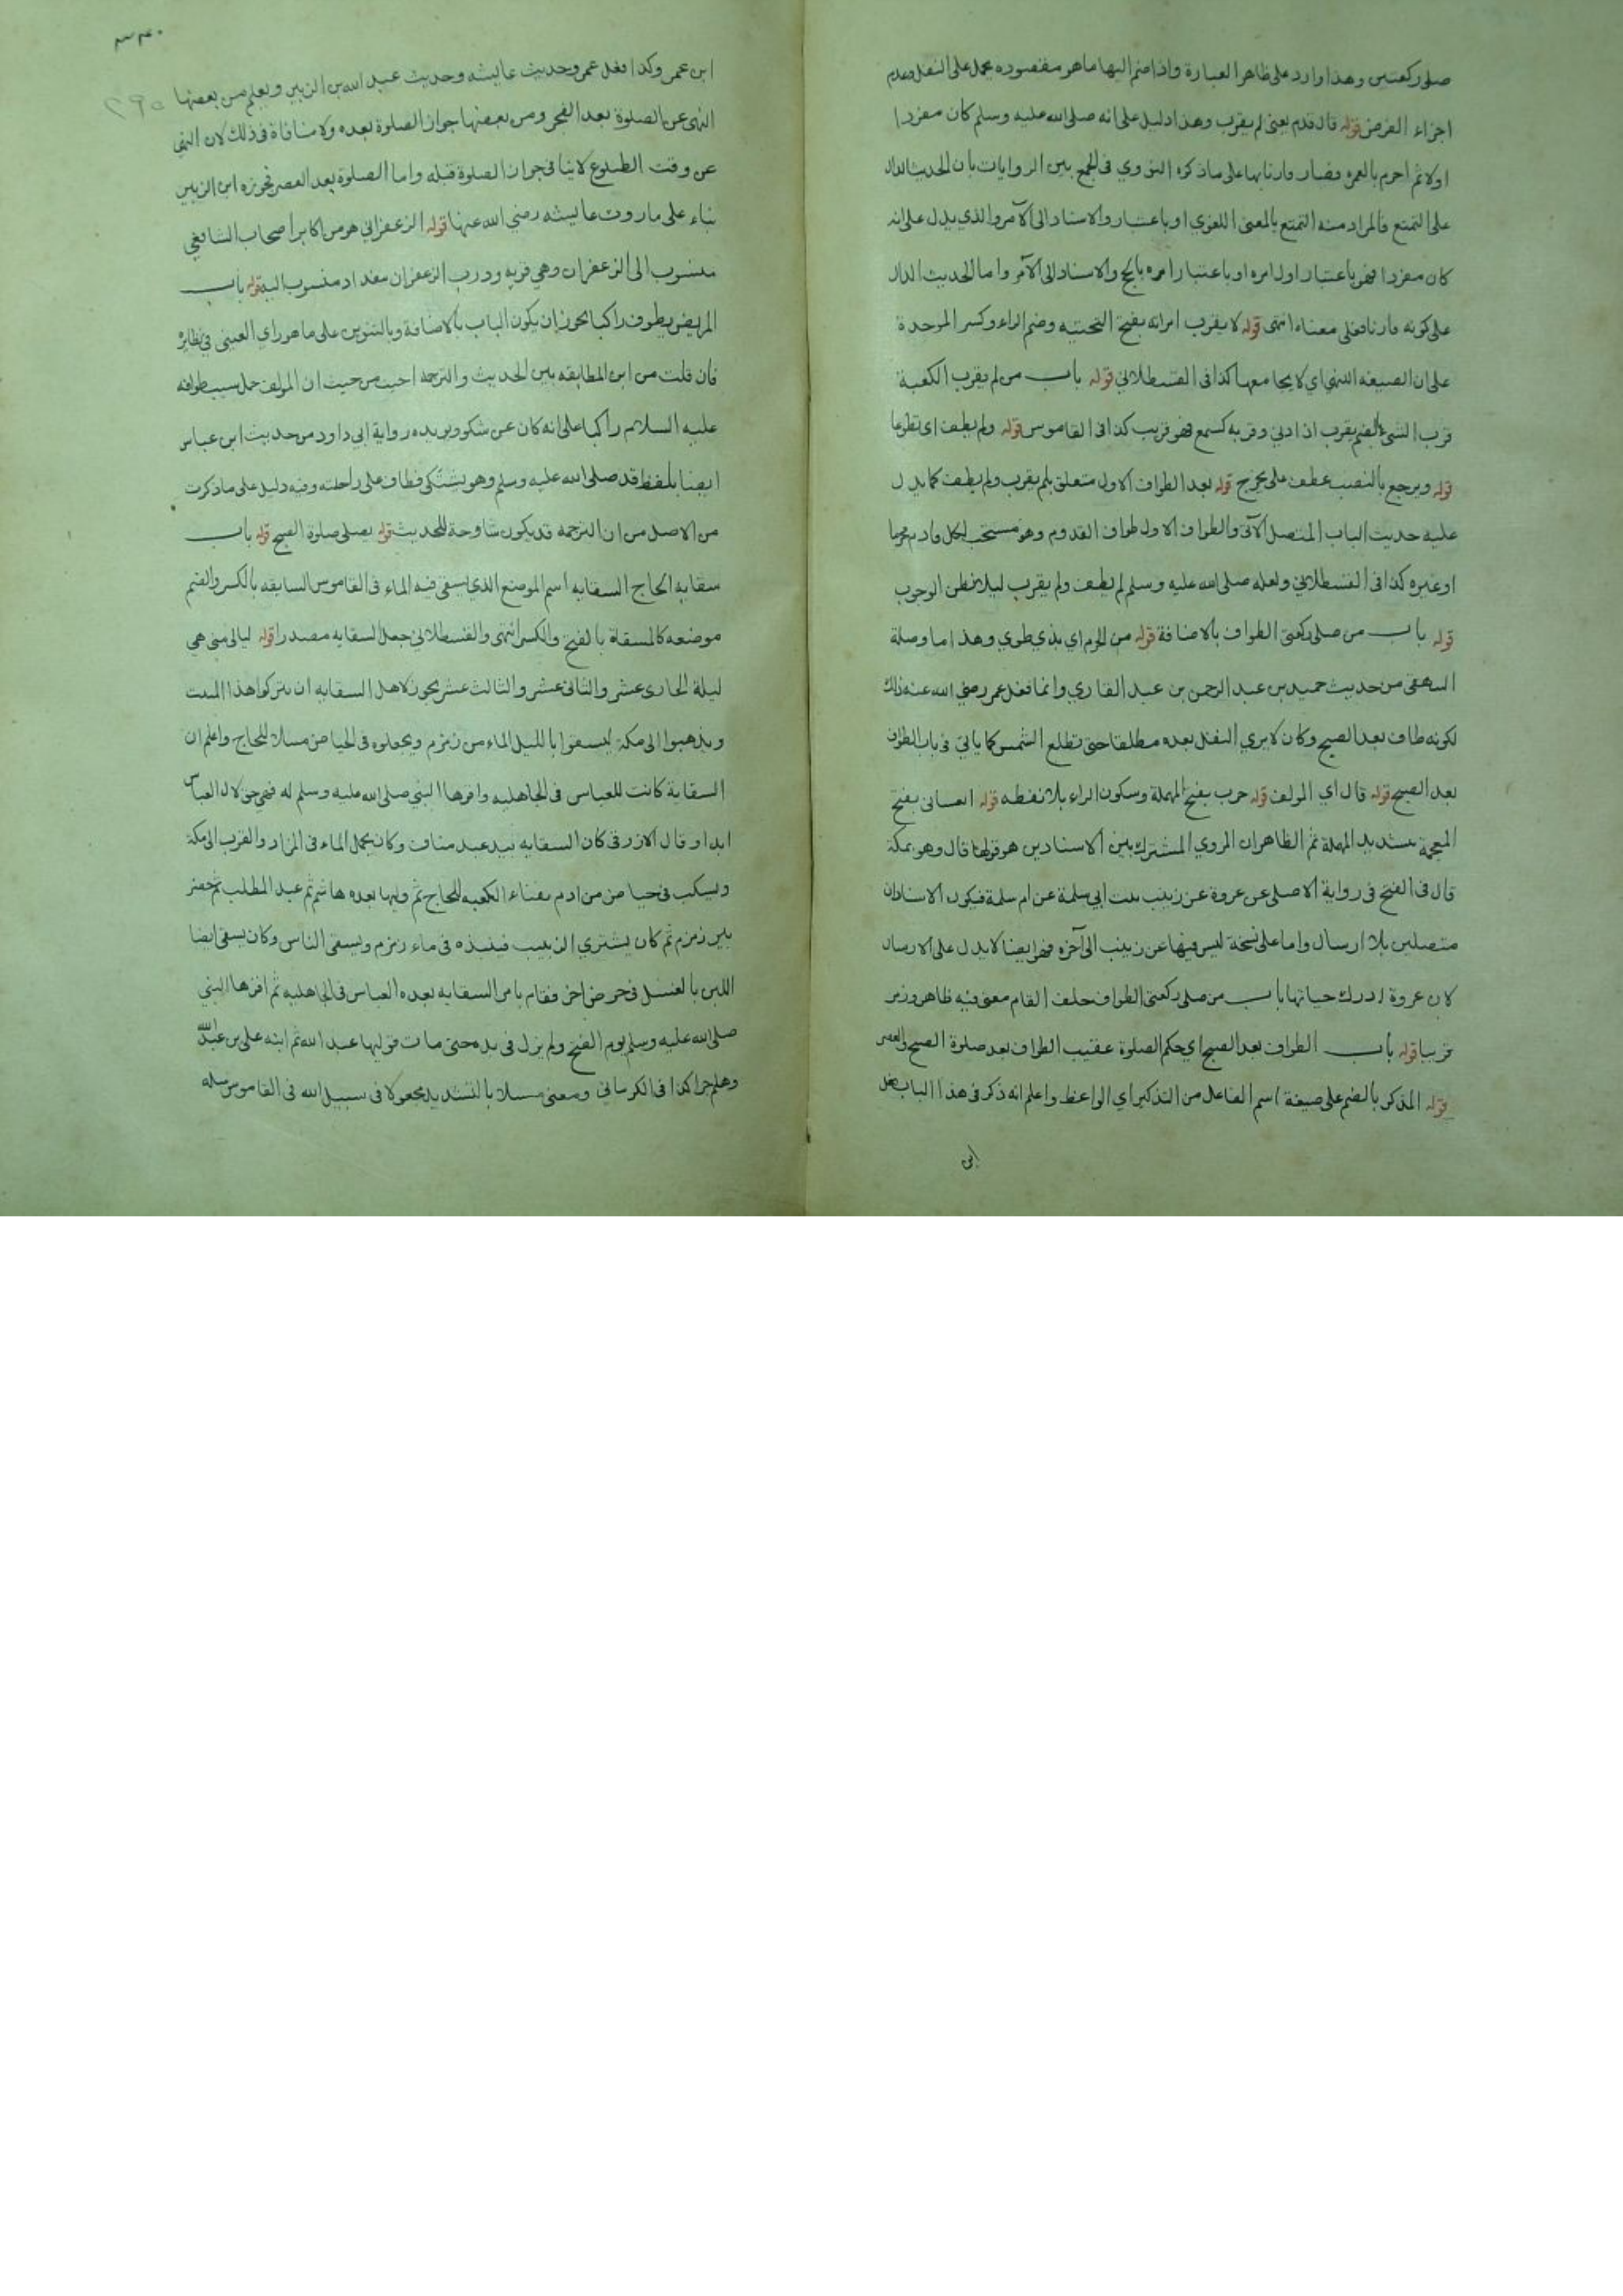 صلى ركعتين وهذا وارد على ظاهر العبارة واذا ضم اليها ما هو مقصوده يحمل على النفل وعدم
اجزاء الفرض قوله قال قدم يعنى لم يقرب وهذا دليل على انه صلى الله عليه وسلم كان مفردا
اولا ثم احرم بالعمرة فصار قارنا بها على ما ذكره النووي في الجمع بين الروايات بان الحديث الدال
على التمتع فالمراد منه التمتع بالمعنى اللغوي او باعتبار والاسناد الى الآمر والذي يدل على انه
كان مفردا فهو باعتبار اول امره او باعتبار امره بالحج والاسناد الى الآمر واما الحديث الدال
على كونه قارنا فعلى معناه انتهى قوله لا يقرب امراته بفتح التحتيه وضم الراء وكسر الموحدة
على ان الصيغه للنهي اي لا يجامعها كذا في القسطلاني قوله باب من لم يقرب الكعبة
قرب الشئ بالضم يقرب اذا دنى وقربه كسمع فهو قريب كذا في القاموس قوله ولم يطف اى تطوعا
قوله ويرجع بالنصب عطف على يخرج قوله بعد الطواف الاول متعلق بلم يقرب ولم يطف كما يدل
عليه حديث الباب المتصل الآتي والطواف الاول طواف القدوم وهو مستحب لكل قادم محرما
او غيره كذا في القسطلاني ولعله صلى الله عليه وسلم لم يطف ولم يقرب ليلا يظن الوجوب
قوله باب من صلى ركعتى الطواف بالاضافة قوله من الحرم اي بذي طوي وهذا ما وصله
البيهقي من حديث حميد بن عبد الرحمن بن عبد القاري وانما فعل عمر رضي الله عنه ذلك
لكونه طاف بعد الصبح وكان لا يري النفل بعده مطلقا حتى تطلع الشمس كما ياتي في باب الطواف
بعد الصبح قوله قال اي المولف قوله حرب بفتح المهملة وسكون الراء بلا نقطه قوله الغساني بفتح
المعجمة بتشديد المهملة ثم الظاهر ان المروي المشترك بين الاسنادين هو قولها قال وهو بمكة
قال في الفتح في رواية الاصلي عن عروة عن زينب بنت ابي سلمة عن ام سلمة فيكون الاسنادان
متصلين بلا ارسال واما على نسخة ليس فيها عن زينب الى آخره فهو ايضا لا يدل على الارسال
لان عروة ادرك حياتها باب من صلى ركعتى الطواف خلف المقام معنى فيه ظاهر ومر
قريبا قوله باب الطواف بعد الصبح اي حكم الصلوة عقيب الطواف بعد صلوة الصبح والعصر
قوله المذكر بالضم على صيغة اسم الفاعل من التذكير اي الواعظ واعلم انه ذكر في هذا الباب فعل
ابن
ابن عمر وكذا فعل عمر وحديث عايشه وحديث عبد الله بن الزبير ويعلم من بعضها
النهى عن الصلوة بعد الفجر ومن بعضها جواز الصلوة بعده ولا منافاة في ذلك لان النهي
عن وقت الطلوع لا ينافي جواز الصلوة قبله واما الصلوة بعد العصر تجوزه ابن الزبير
بناء على ما روت عايشه رضي الله عنها قوله الزعفراني هو من اكابر اصحاب الشافعي
منسوب الى الزعفران وهي قرية ودرب الزعفران ببغداد منسوب اليه قوله باب
المريض يطوف راكبا يجوز ان يكون الباب بالاضافة وبالتنوين على ما هو راي العيني في نظايره
فان قلت من اين المطابقه بين الحديث والترجمه اجيب من حيث ان المولف حمل سبب طوافه
عليه السلام راكبا على انه كان عن شكو ويريده رواية ابي داود من حديث ابن عباس
ايضا بلفظ قدم صلى الله عليه وسلم وهو يشتكى فطاف على راحلته وفيه دليل على ما ذكرت
من الاصل من ان الترجمه قد يكون شارحة للحديث قوله يصلى صلوة الصبح قوله باب
سقاية الحاج السقايه اسم الموضع الذي يسقى فيه الماء في القاموس السقايه بالكسر والضم
موضعه كالمسقاة بالفتح والكسر انتهى والقسطلاني جعل السقايه مصدرا قوله ليالى منى هي
ليلة الحادى عشر والثانى عشر والثالث عشر يجوز لاهل السقايه ان يتركوا هذا المبيت
ويذهبوا الى مكة ليسقوا بالليل الماء من زمزم ويجعلوه في الحياض مسبلا للحاج واعلم ان
السقاية كانت للعباس في الجاهليه واقرها النبي صلى الله عليه وسلم له فهي حق لال العباس
ابدا وقال الازرقى كان السقايه بيد عبد مناف وكان يحمل الماء في المزاد والقرب الى مكة
ويسكب في حياض من ادم بفناء الكعبه للحاج ثم وليها بعده هاشم ثم عبد المطلب ثم حفر
بير زمزم ثم كان يشتري الزبيب فينبذه في ماء زمزم ويسقى الناس وكان يسقى ايضا
اللبن بالعسل في حوض اخر فقام بامر السقايه بعده العباس في الجاهليه ثم اقرها النبي
صلى الله عليه وسلم يوم الفتح ولم يزل في يده حتى مات فوليها عبد الله ثم ابنه على بن عبد الله
وهلم جرا كذا في الكرماني ومعنى مسبلا بالتشديد مجعولا في سبيل الله في القاموس سبله